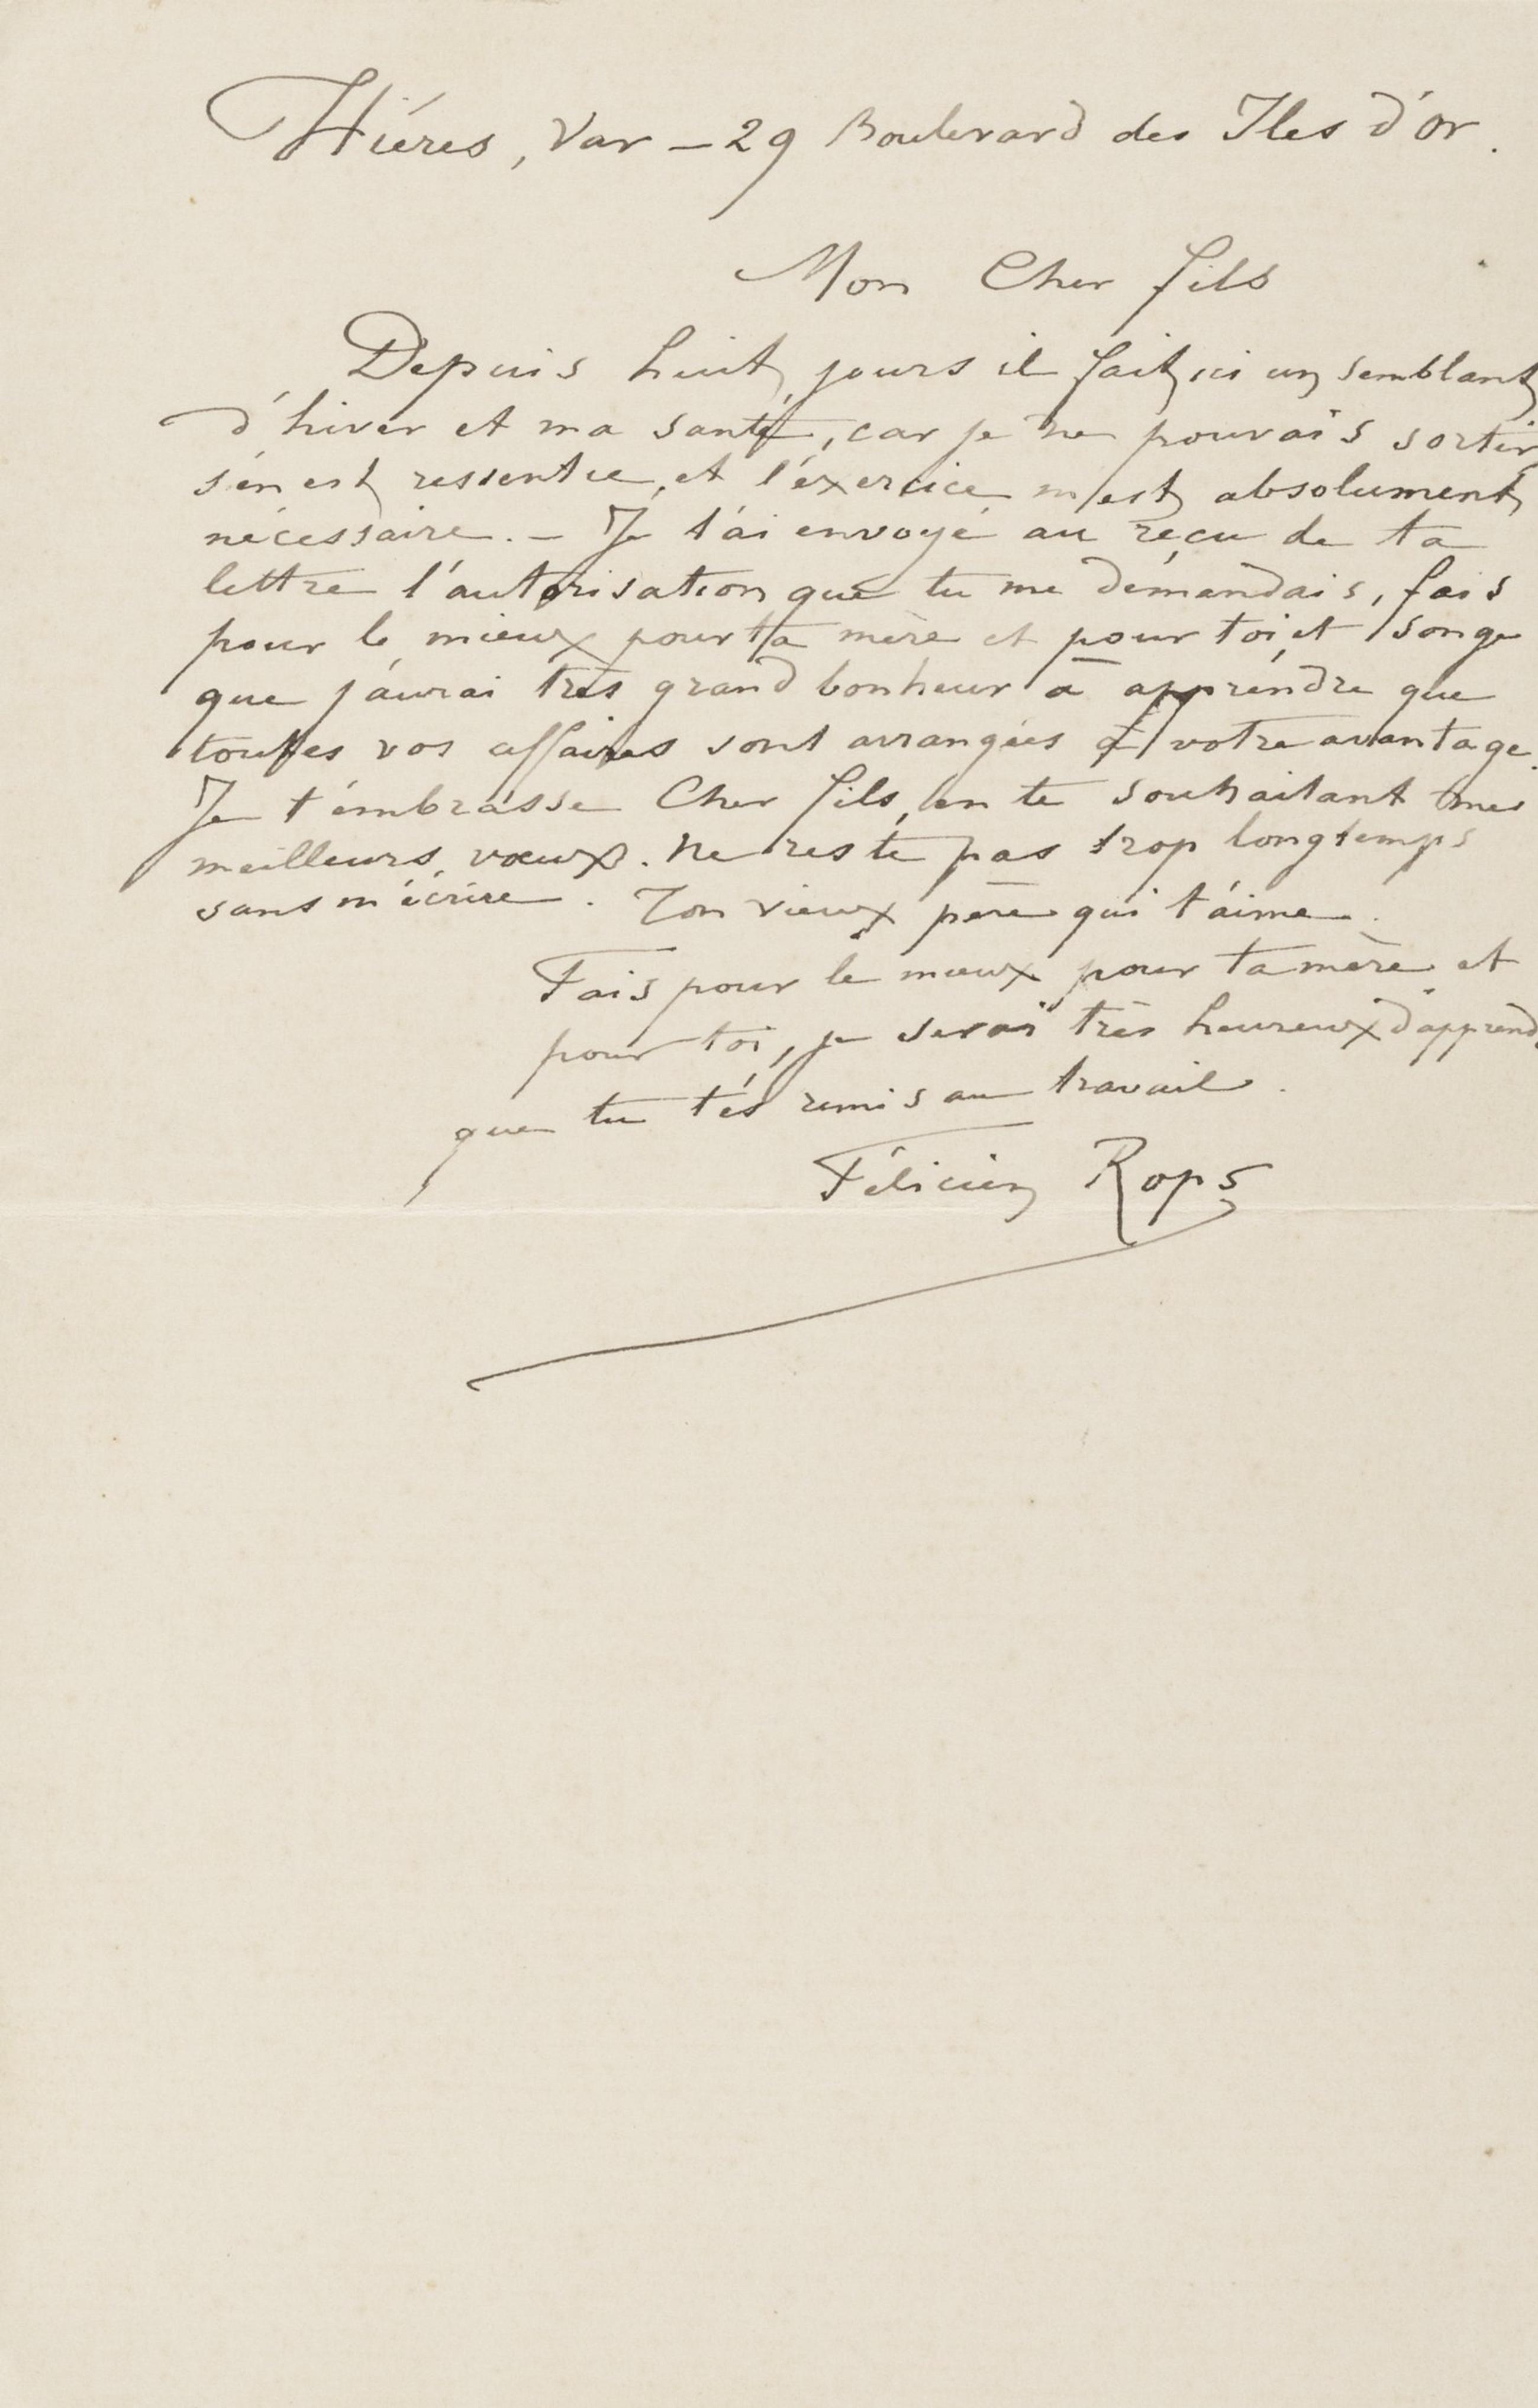 Hiéres, Var – 29 Boulevard des Iles d'or.
Mon Cher fils
Depuis huit jours il fait ici un semblant
d'hiver et ma santé, car je ne pouvais sortir
s'en est ressentie, et l'éxercice m'est absolument
nécessaire. – Je t'ai envoyé au reçu de ta
lettre l'autorisation que tu me demandais, fais
pour le mieux pour ta mère et pour toi, et songe
que j'aurai très grand bonheur à apprendre que
toutes vos affaires sont arrangées à votre avantage.
Je t'embrasse Cher fils, en te souhaitant mes
meilleurs vœux. ne reste pas trop longtemps
sans m'écrire. Ton vieux père qui t'aime.
Fais pour le mieux pour ta mère et
pour toi, je serai très heureux d'apprend
que tu t'és remis au travail.
Félicien Rops